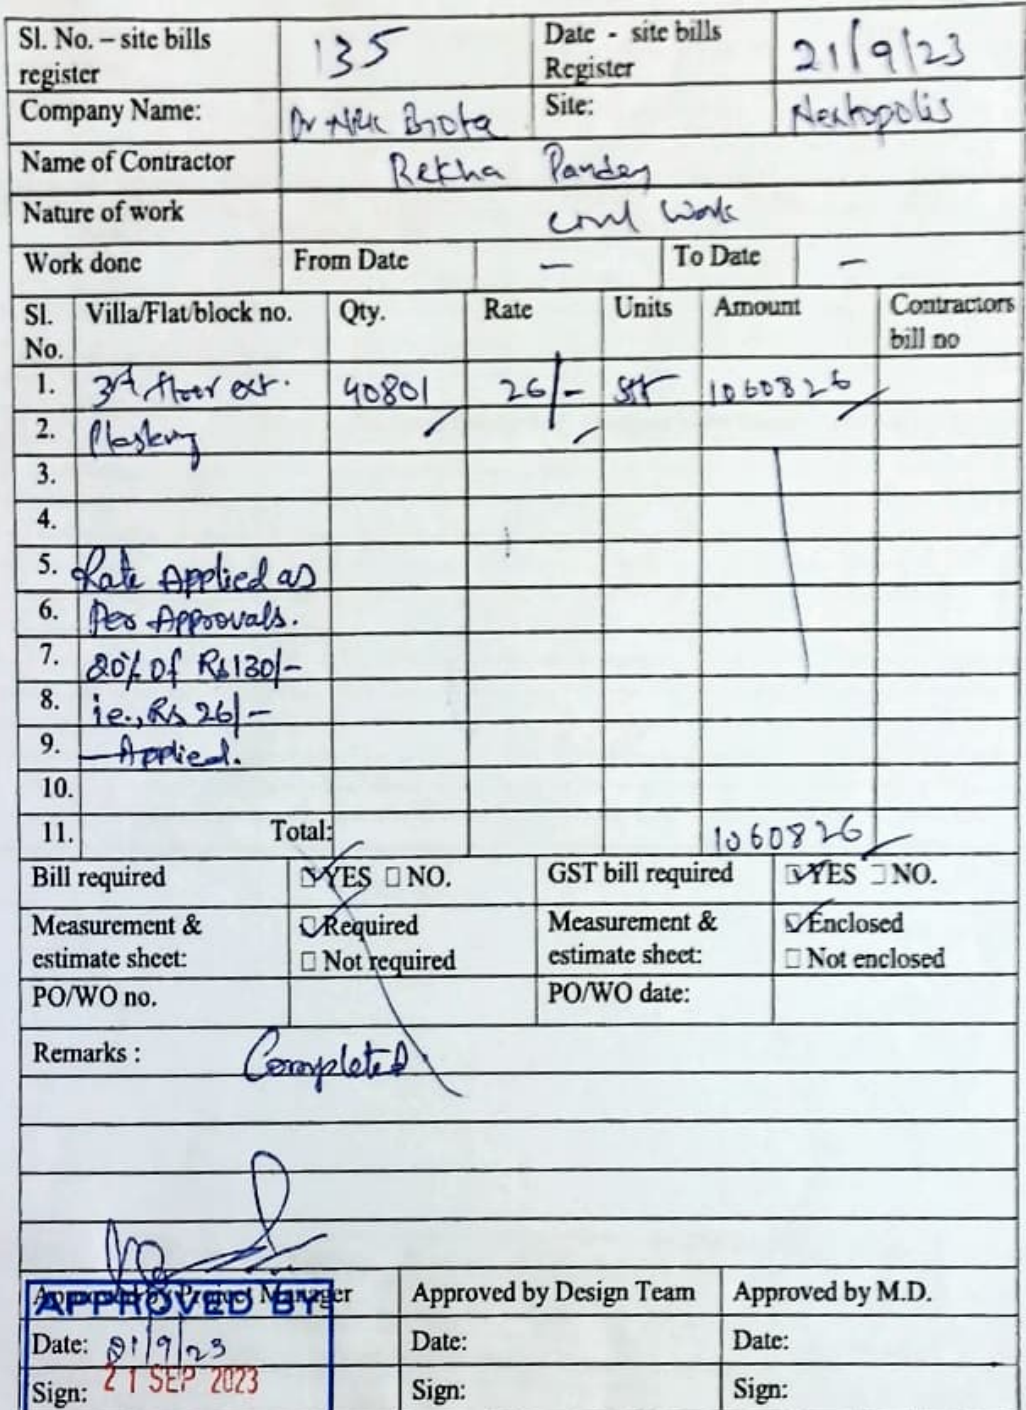 Sl. No. – site bills register 135 Date - site bills Register 21/9/23
Company Name: Dr Biota Site: Nextopolis
Name of Contractor Rekha Pandey
Nature of work civil work
Work done From Date – To Date –
Sl. No. Villa/Flat/block no. Qty. Rate Units Amount Contractors bill no
1. 3rd floor ext. 40801 26/- sft 1060826
2. Plastering
3.
4.
5. Rate Applied as
6. Per Approvals.
7. 20% of Rs130/-
8. i.e., Rs 26/-
9. Applied.
10.
11. Total: 1060826
Bill required YES NO. GST bill required YES NO.
Measurement & estimate sheet: Required Measurement & estimate sheet: Enclosed
Not required Not enclosed
PO/WO no. PO/WO date:
Remarks : Completed
Approved by Project Manager Approved by Design Team Approved by M.D.
APPROVED BY
Date: 21/9/23 Date: Date:
21 SEP 2023
Sign: Sign: Sign: